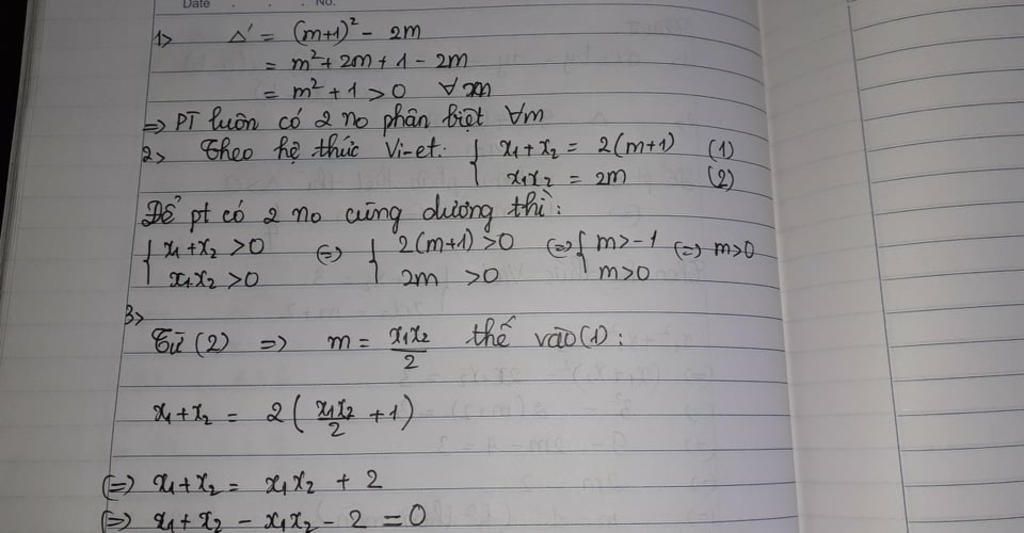 Date . . . No.
1> Δ' = (m+1)² - 2m
= m² + 2m + 1 - 2m
= m² + 1 > 0 ∀m
=> PT luôn có 2 no phân biệt ∀m
2> Theo hệ thức Vi-et: { x₁ + x₂ = 2(m+1) (1)
x₁x₂ = 2m (2)
Để pt có 2 no cùng dương thì:
{ x₁ + x₂ > 0 (=) { 2(m+1) > 0 (=) { m > -1 (=) m > 0
x₁x₂ > 0 2m > 0 m > 0
3>
Từ (2) => m = x₁x₂/2 thế vào (1):
x₁ + x₂ = 2(x₁x₂/2 + 1)
(=) x₁ + x₂ = x₁x₂ + 2
(=) x₁ + x₂ - x₁x₂ - 2 = 0